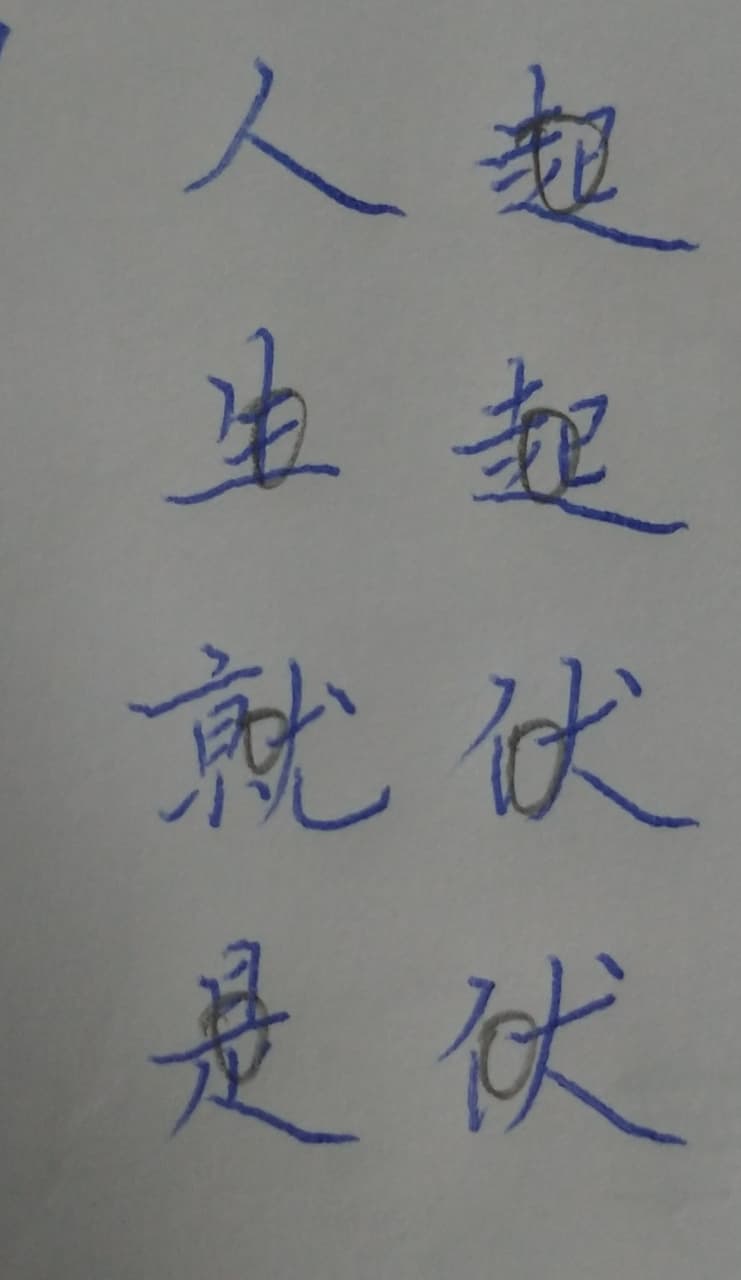 人生就是
起起伏伏